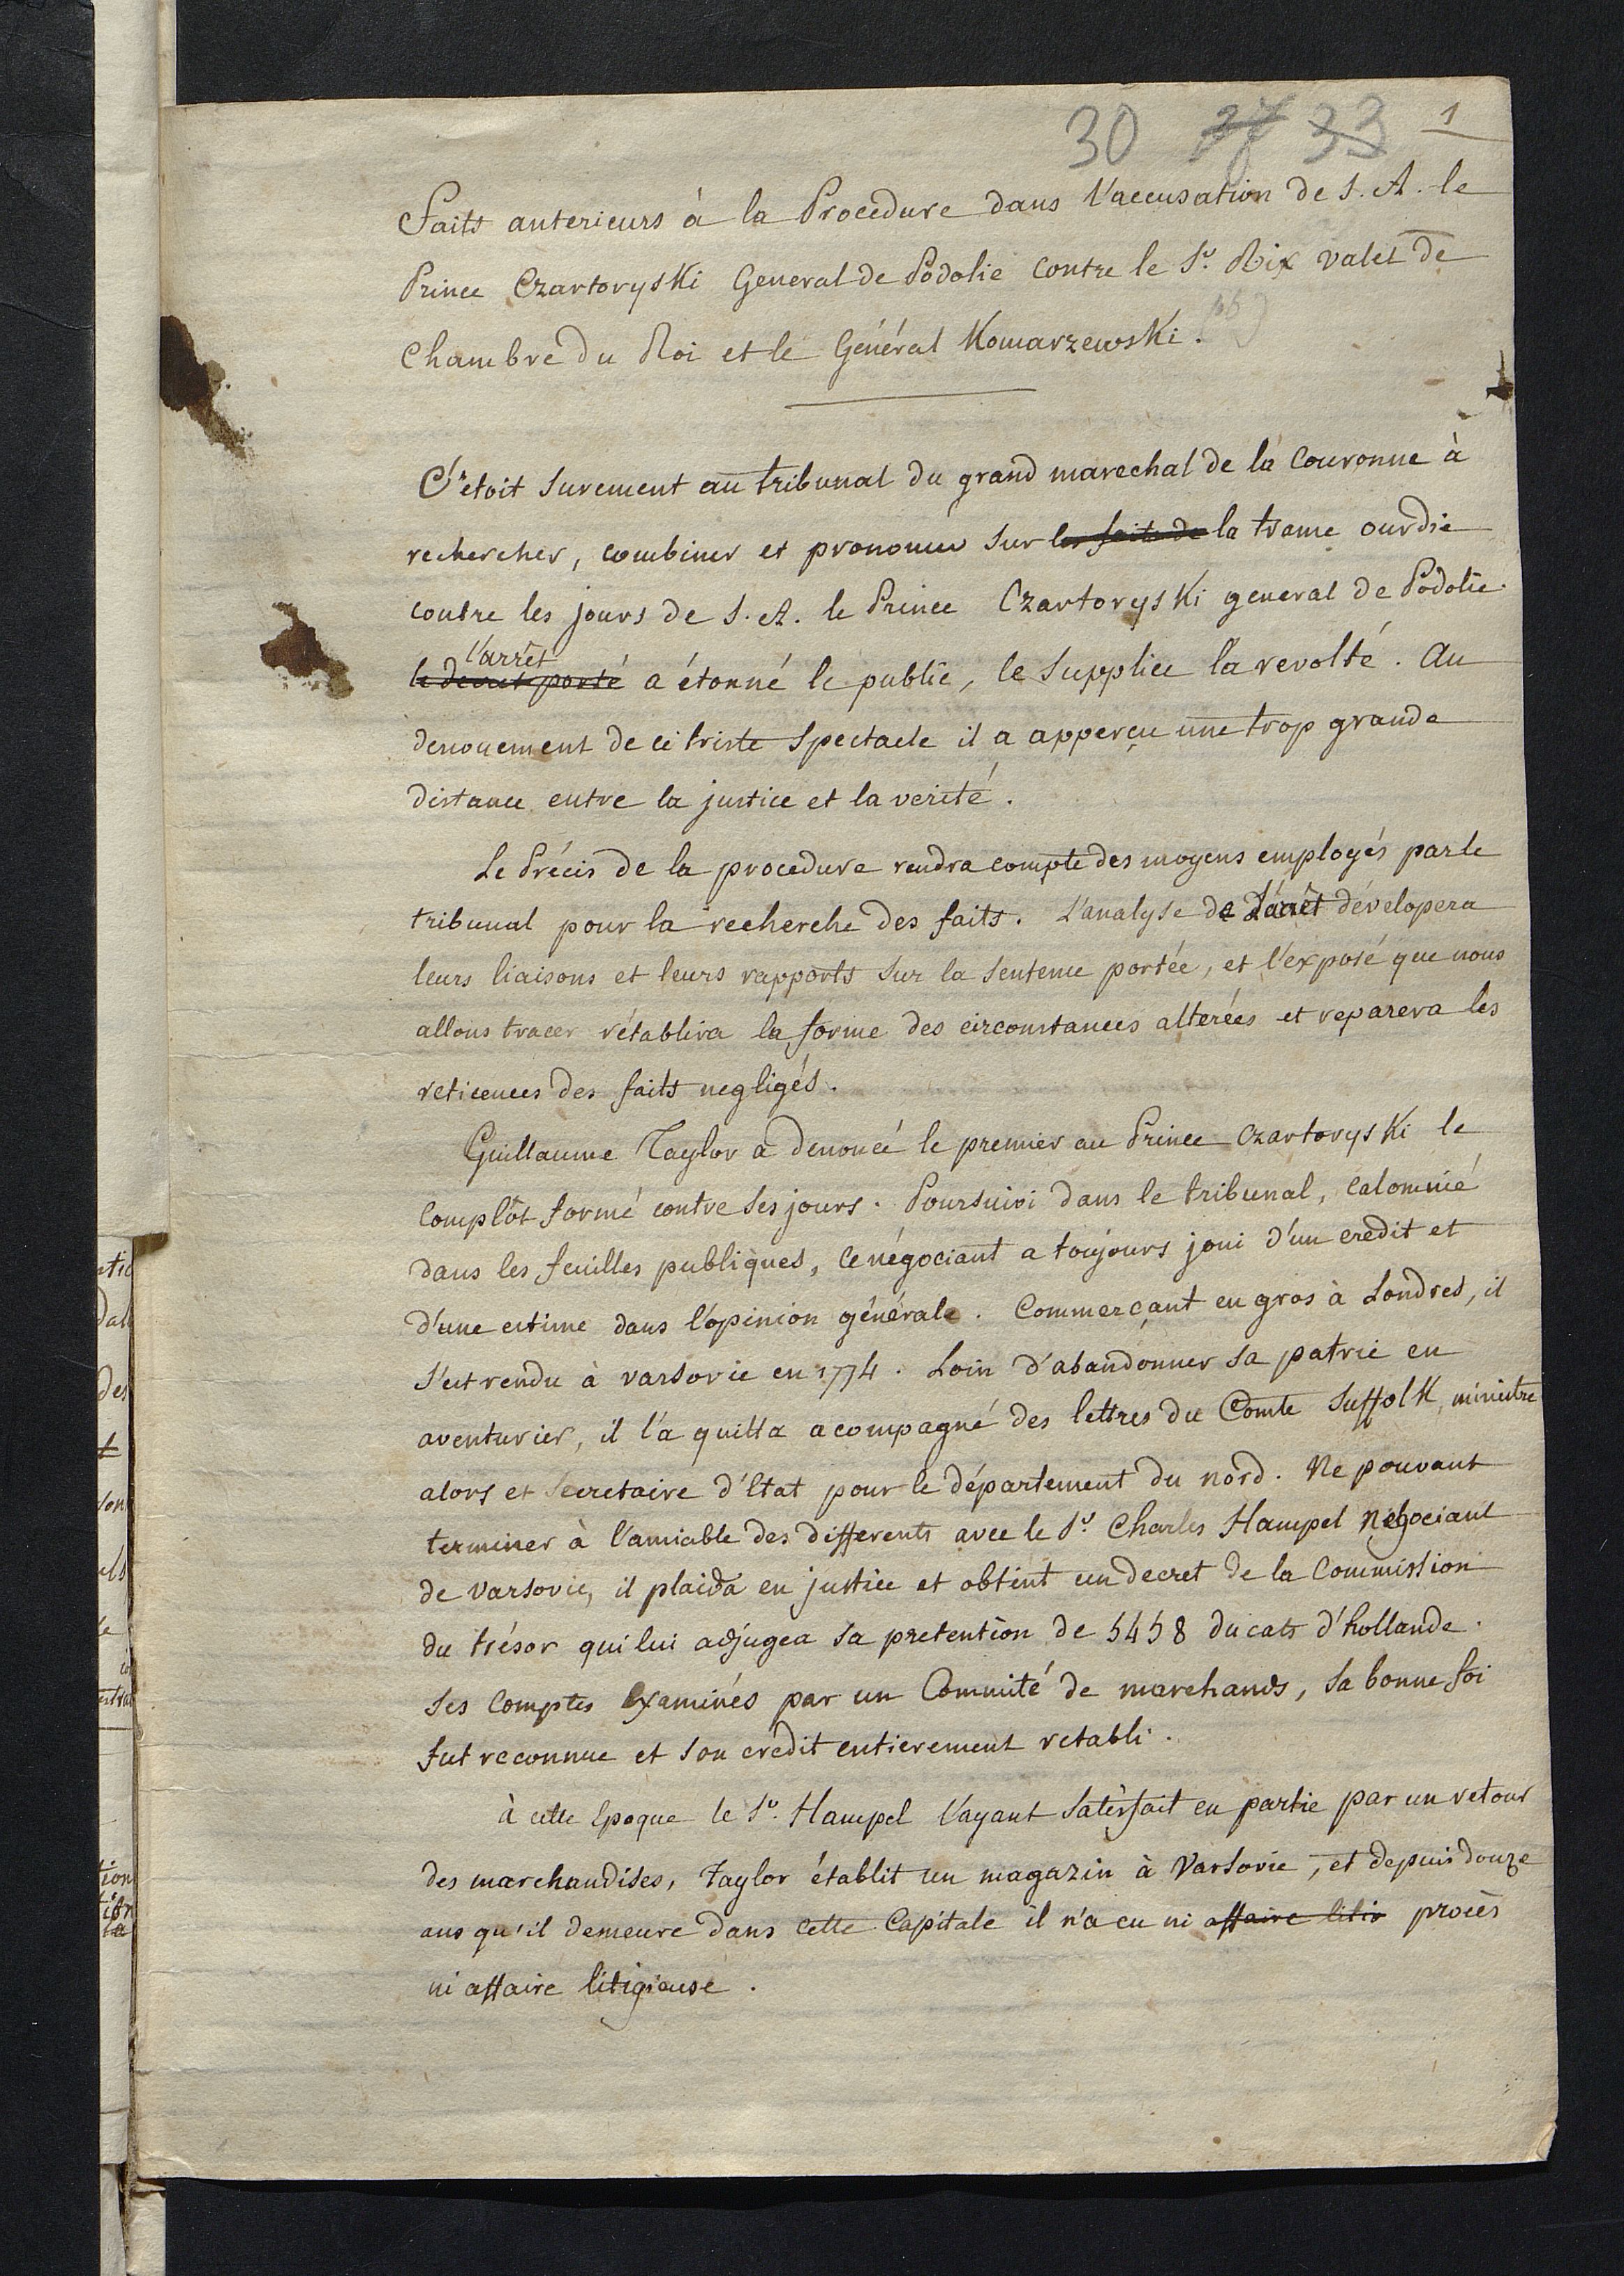 30 37 33 1
Faits anterieurs à la Procedure dans l'accusation de S. A. le
Prince Czartoryski General de Podolie contre le Sr. Rix valet de
Chambre du Roi et le Général Komarzewski.
C'etoit surement au tribunal du grand marechal de la Couronne à
rechercher, combiner et prononcer sur les faits de la trame ourdie
contre les jours de S. A. le Prince Czartoryski general de Podolie.
l'arrêt
le decret porté a étonné le public, le supplice l'a revolté. Au
denouement de ce triste spectacle il a apperçu une trop grande
distance entre la justice et la verité.
Le Précis de la procedure rendra compte des moyens employés par le
tribunal pour la recherche des faits. L'analyse de L'arrêt dévelopera
leurs liaisons et leurs rapports sur la sentence portée, et l'exposé que nous
allons tracer rétablira la forme des circonstances alterées et reparera les
reticences des faits negligés.
Guillaume Taylor a denoncé le premier au Prince Czartoryski le
Complôt formé contre ses jours. Poursuivi dans le tribunal, calomnié
dans les feuilles publiques, ce négociant a toujours joui d'un credit et
d'une estime dans l'opinion générale. Commerçant en gros à Londres, il
s'est rendu à varsovie en 1774. Loin d'abandonner sa patrie en
aventurier, il l'a quitta acompagné des lettres du Comte Suffolk, ministre
alors et Secretaire d'Etat pour le département du nord. Ne pouvant
terminer à l'amiable des differents avec le Sr. Charles Hampel Négociant
de varsovie, il plaida en justice et obtint un decret de la Commission
du trésor qui lui adjugea sa pretention de 5458 ducats d'hollande.
ses Comptes Examinés par un Committé de marchands, sa bonne foi
fut reconnue et son credit entierement retabli.
à cette Epoque le Sr. Hampel l'ayant satisfait en partie par un retour
des marchandises, Taylor établit un magazin à Varsovie, et depuis douze
ans qu'il demeure dans cette Capitale il n'a eu ni affaire litis procès
ni affaire litigieuse.